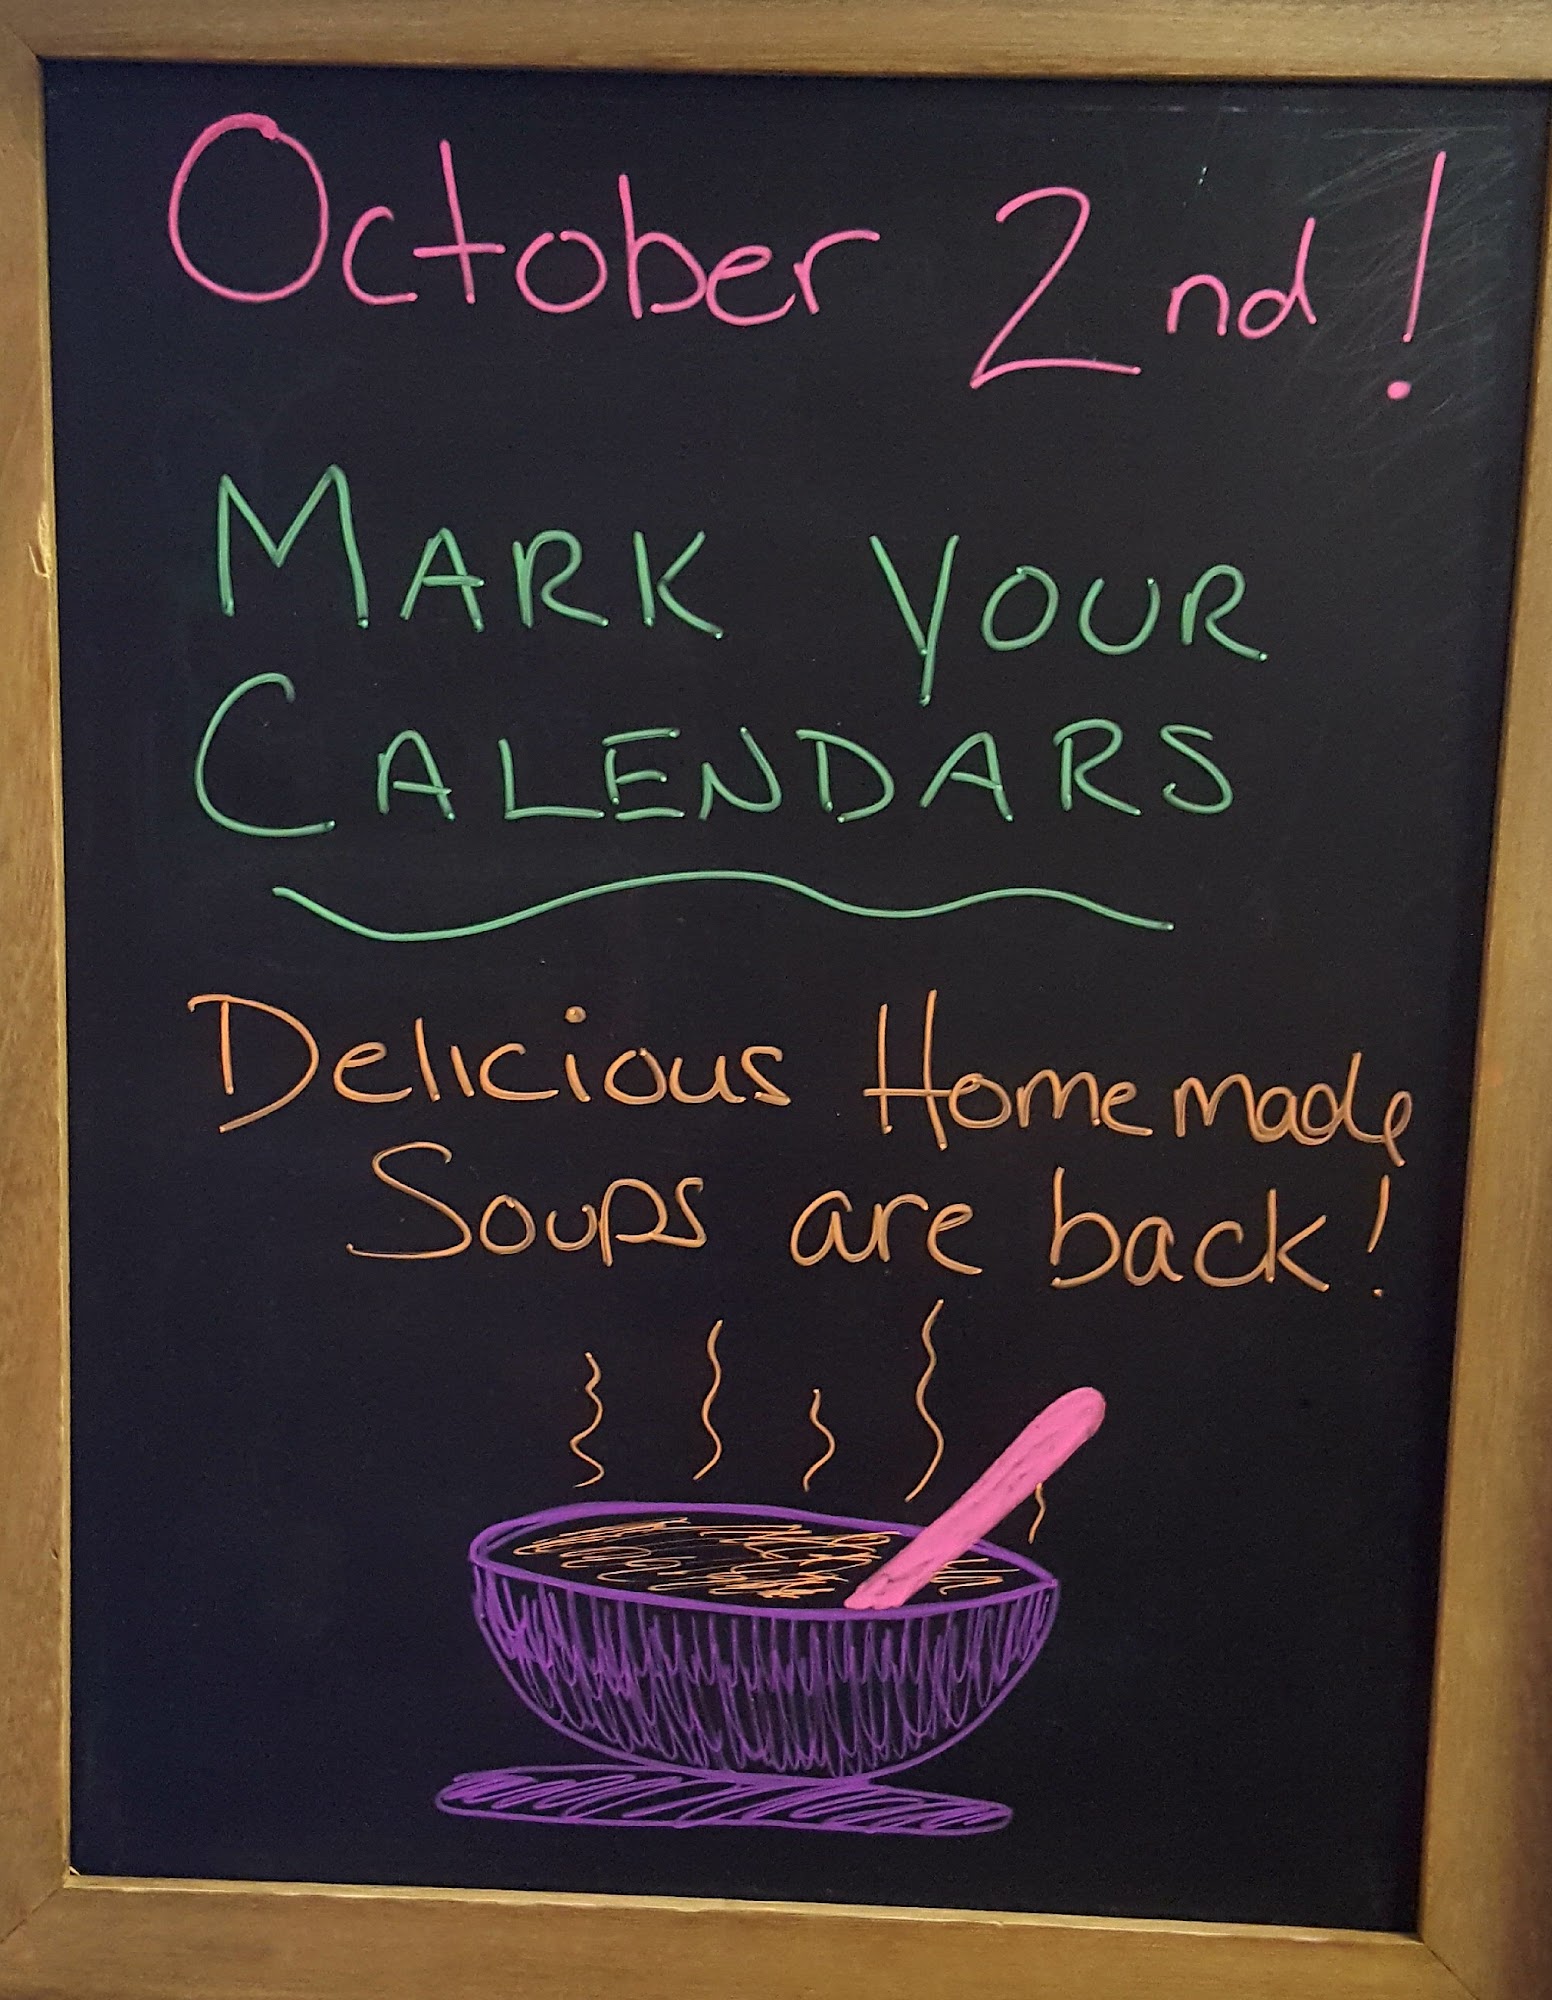 October 2nd!
MARK YOUR
CALENDARS
Delicious Homemade
Soups are back!